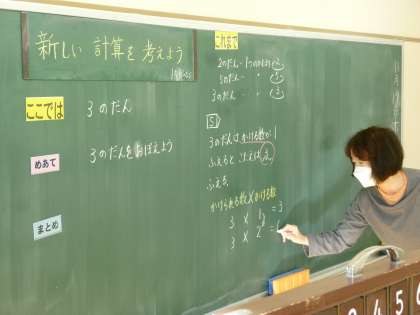 新しい計算を考えよう
ここでは
3のだん
めあて
3のだんをおぼえよう
まとめ
これまで
2のだん-1つのとき
5のだん-〃 5
3のだん-〃 3
S
3のだんは かける数が1
ふえると こたえは3
ふえる。
かけられる数×かける数
3 × 1 = 3
3 × 2 =
4 5 6